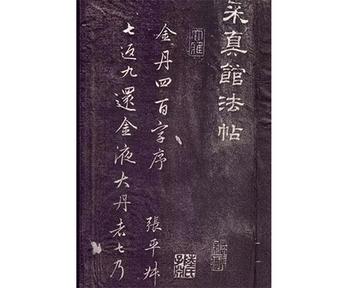 采真館法帖
金丹四百字序
張平叔
七返九還金液大丹者七乃